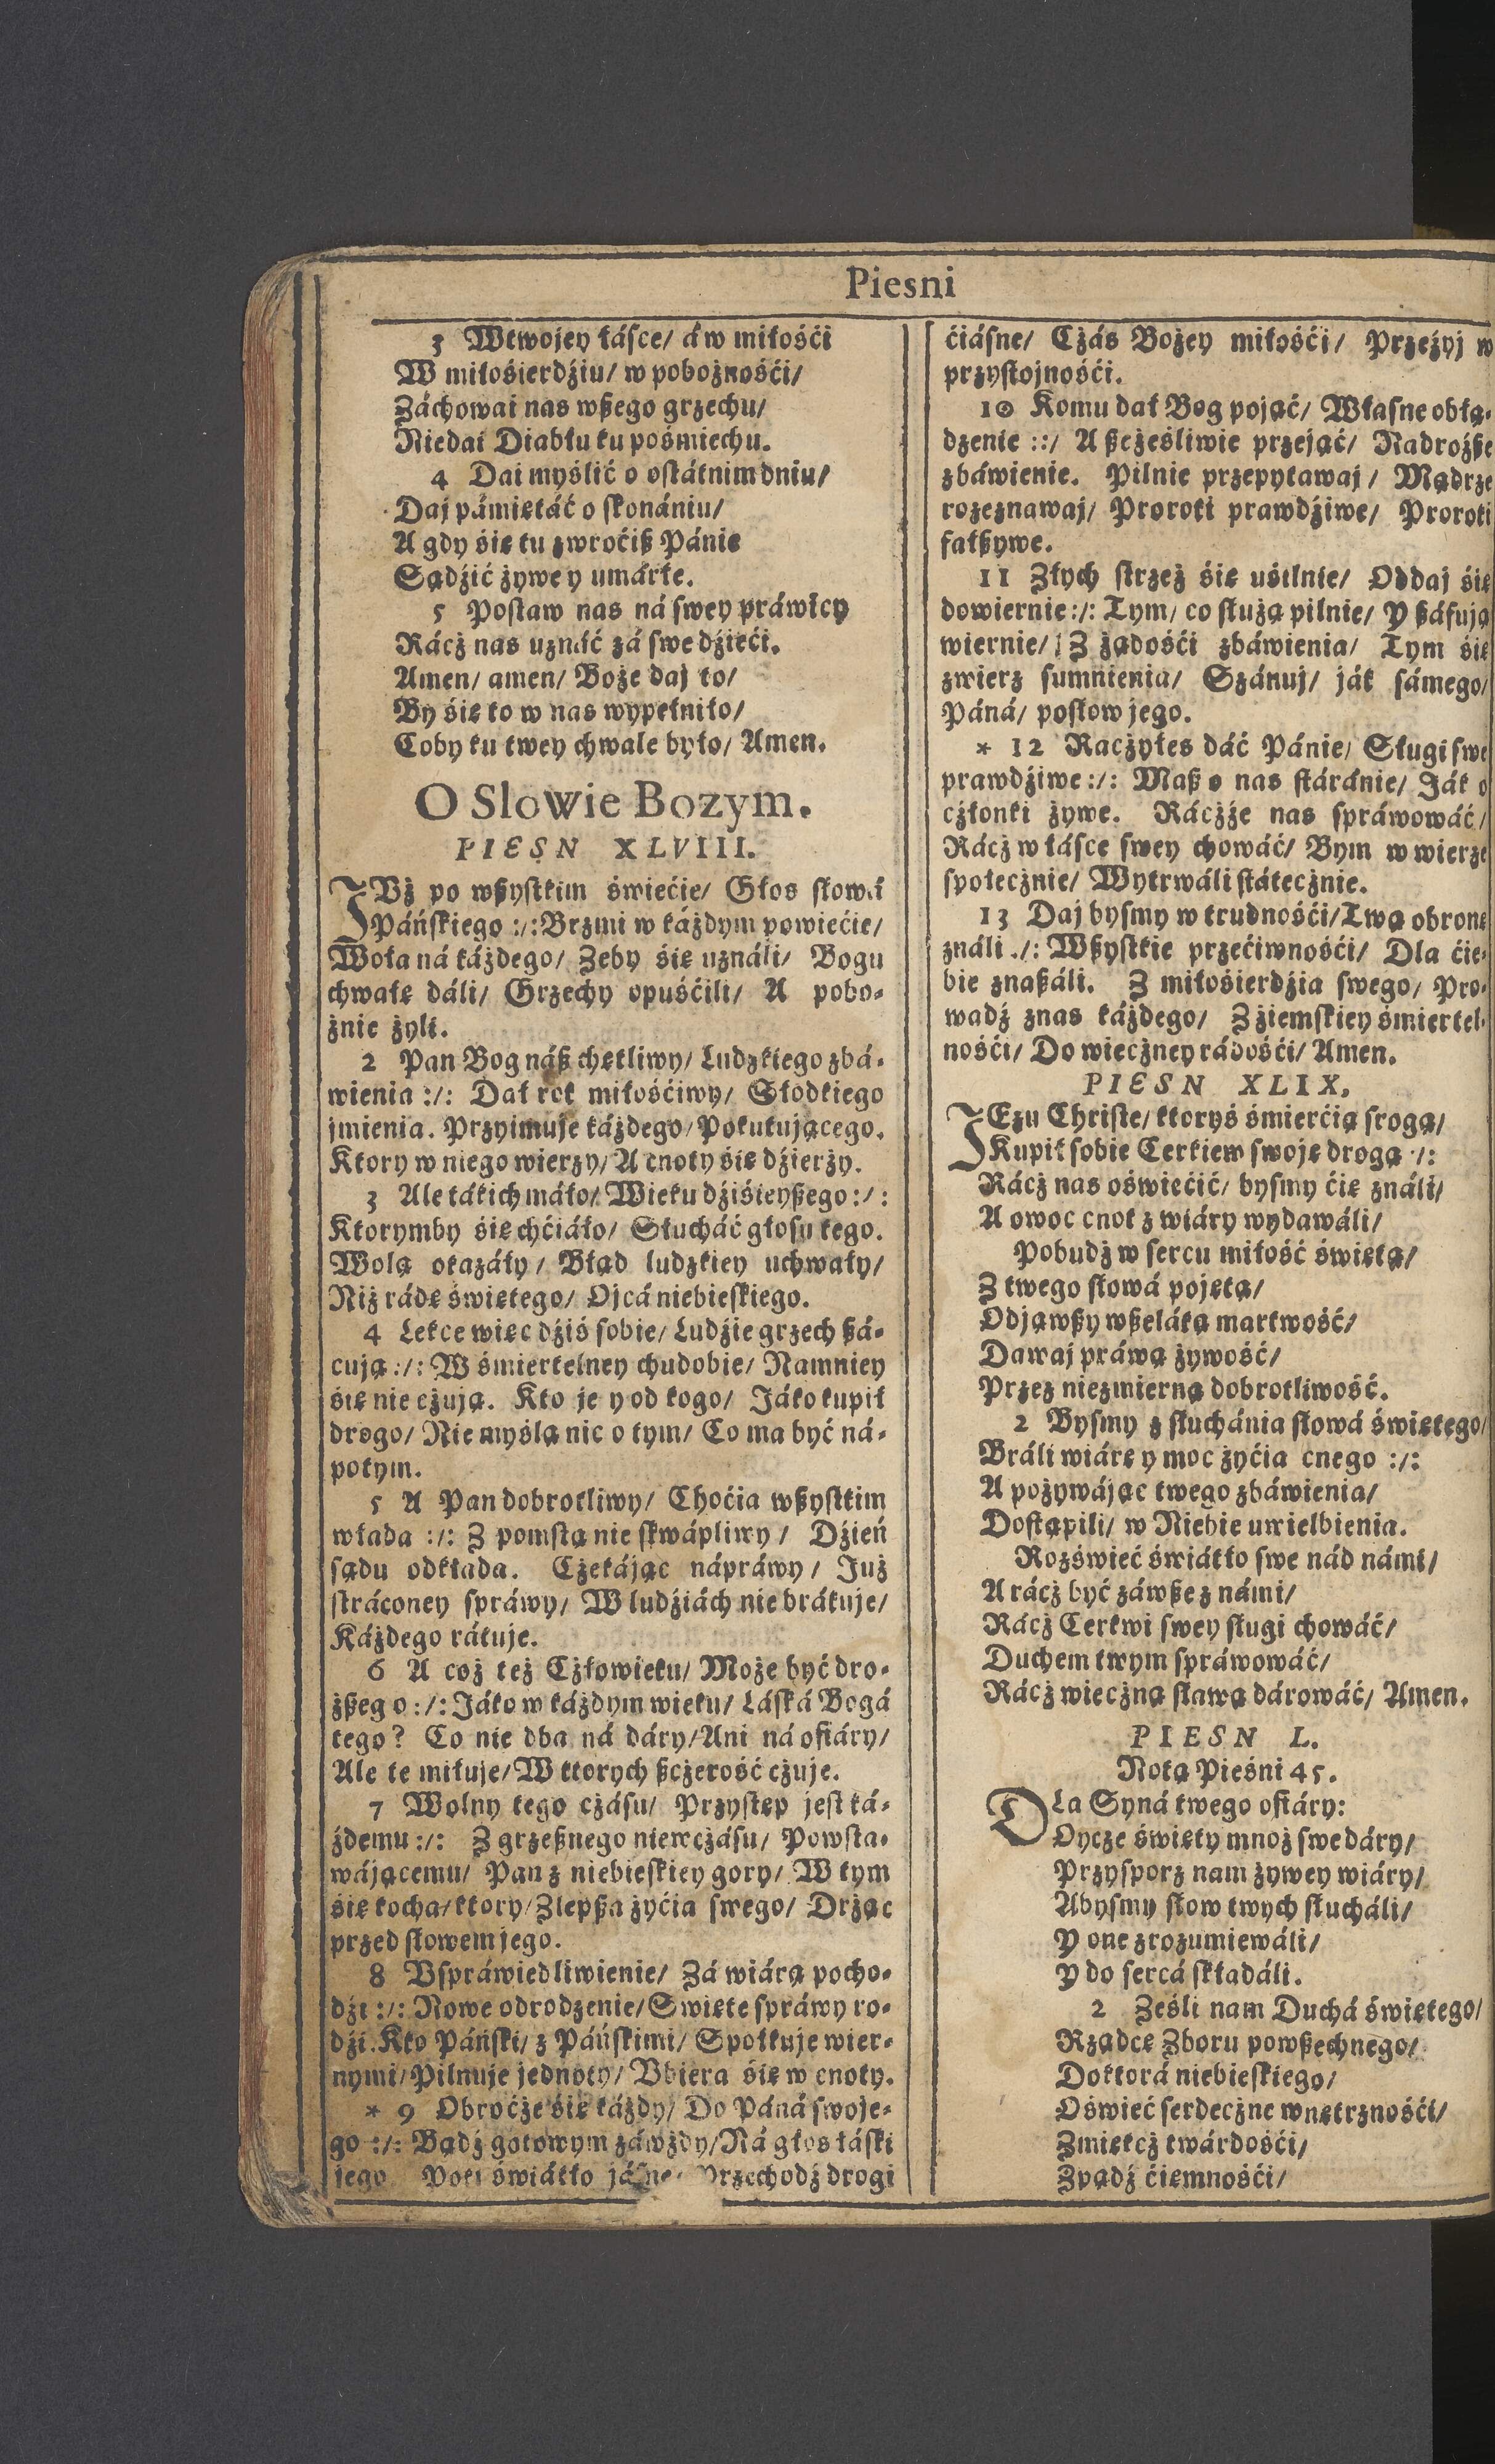 Piesni
3 Wtwojey łásce/ á w miłośći
W miłośierdźiu/ w pobożnośći/
Záchowai nas wßego grzechu/
Niedai Diabłu ku pośmiechu.
4 Dai myślić o ostátnim dniu/
Daj pámiętáć o skonániu/
A gdy śię tu zwroćiß Pánie
Sądźić żywe y umárłe.
5 Postaw nas ná swey práwicy
Rácż nas uznáć zá swe dźieći.
Amen/ amen/ Boże daj to/
By śię to w nas wypełniło/
Coby ku twey chwale było/ Amen.
O Slowie Bozym.
PIESN XLVIII.
IVż po wßystkim świećie/ Głos słowá
Páńskiego :/: Brzmi w káżdym powiećie/
Woła ná káżdego/ Zeby śię uználi/ Bogu
chwałę dáli/ Grzechy opuśćili/ A pobo-
żnie żyli.
2 Pan Bog náß chętliwy/ Ludzkiego zbá-
wienia :/: Dał rok miłośćiwy/ Słodkiego
jmienia. Przyimuje káżdego/ Pokutującego.
Ktory w niego wierzy/ A cnoty śię dźierży.
3 Ale tákich máło/ Wieku dźiśieyßego :/:
Ktorymby śię chćiáło/ Słucháć głosu tego.
Wolą okazáły/ Błąd ludzkiey uchwały/
Niż rádę świętego/ Ojcá niebieskiego.
4 Lekce więc dźiś sobie/ Ludźie grzech ßá-
cują :/: W śmiertelney chudobie/ Namniey
śię nie cżują. Kto je y od kogo/ Jáko kupił
drogo/ Nie myślą nic o tym/ Co ma być ná-
potym.
5 A Pan dobrotliwy/ Choćia wßystkim
włada :/: Z pomstą nie skwápliwy/ Dźień
sądu odkłada. Cżekájąc nápráwy/ Już
stráconey spráwy/ W ludźiách nie brákuje/
Káżdego rátuje.
6 A coż też Cżłowieku/ Może być dro-
żßego :/: Jáko w káżdym wieku/ Láská Bogá
tego? Co nie dba ná dáry/ Ani ná ofiáry/
Ale te miłuje/ W ktorych ßcżerość cżuje.
7 Wolny tego cżásu/ Przystęp jest ká-
żdemu :/: Z grzeßnego niewcżásu/ Powsta-
wájącemu/ Pan z niebieskiey gory/ W tym
śię kocha/ ktory/ Zlepßa żyćia swego/ Drżąc
przed słowem jego.
8 Vspráwiedliwienie/ Zá wiárą pocho-
dźi :/: Nowe odrodzenie/ Swięte spráwy ro-
dźi. Kto Páński/ z Páńskimi/ Społkuje wier-
nymi/ Pilnuje jednoty/ Vbiera śię w cnoty.
* 9 Obroćże śię káżdy/ Do Páná swoje-
go :/: Bądź gotowym záwżdy/ Ná głos łáski
jego Poki świátło jásne/ Przechodź drogi
ćiásne/ Cżás Bożey miłośći/ Przeżyj w
przystojnośći.
10 Komu dał Bog pojąć/ Własne obłą-
dzenie ::/ A ßcżeśliwie przejąć/ Nadrożße
zbáwienie. Pilnie przepytawaj/ Mądrze
rozeznawaj/ Proroki prawdźiwe/ Proroki
fałßywe.
11 Złych strzeż śię uśilnie/ Oddaj śię
dowiernie :/: Tym/ co służą pilnie/ Y ßáfują
wiernie/ Z żądośći zbáwienia/ Tym śię
zwierz sumnienia/ Szánuj/ ják sámego/
Páná/ posłow jego.
* 12 Racżyłes dáć Pánie/ Sługi swe
prawdźiwe :/: Maß o nas stáránie/ Ják o
cżłonki żywe. Rácżże nas spráwowáć/
Rácż w łásce swey chowáć/ Bym w wierze
społecżnie/ Wytrwáli státecżnie.
13 Daj bysmy w trudnośći/ Twą obronę
ználi ./: Wßystkie przećiwnośći/ Dla ćie-
bie znaßáli. Z miłośierdźia swego/ Pro-
wadź znas káżdego/ Z źiemskiey śmiertel-
nośći/ Do wiecżney rádośći/ Amen.
PIESN XLIX.
IEzu Christe/ ktoryś śmierćią srogą/
Kupił sobie Cerkiew swoję drogą :/:
Rácż nas oświećić/ bysmy ćię ználi/
A owoc cnot z wiáry wydawáli/
Pobudź w sercu miłość świętą/
Z twego słowá pojętą/
Odjąwßy wßeláką martwość/
Dawaj práwą żywość/
Przez niezmierną dobrotliwość.
2 Bysmy z słuchánia słowá świętego/
Bráli wiárę y moc żyćia cnego :/:
A pożywájąc twego zbáwienia/
Dostąpili/ w Niebie uwielbienia.
Rozświeć świátło swe nád námi/
A rácż być záwße z námi/
Rácż Cerkwi swey sługi chowáć/
Duchem twym spráwowáć/
Rácż wiecżną sławą dárowáć/ Amen.
PIESN L.
Notą Pieśni 45.
DLa Syná twego ofiáry:
Oycze święty mnoż swe dáry/
Przysporz nam żywey wiáry/
Abysmy słow twych słucháli/
Y one zrozumiewáli/
Y do sercá składáli.
2 Ześli nam Duchá świętego/
Rządcę Zboru powßechnego/
Doktorá niebieskiego/
Oświeć serdecżne wnętrznośći/
Zmiękcż twárdośći/
Zpądź ćiemnośći/